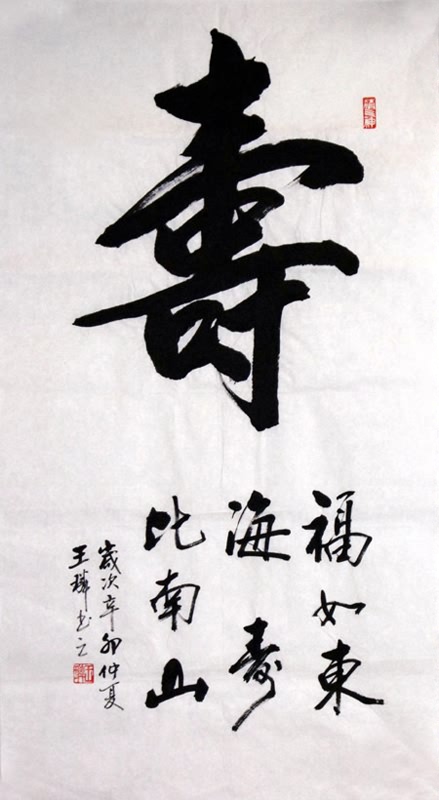 壽
福如東
海壽
比南山
歲次辛卯仲夏
王